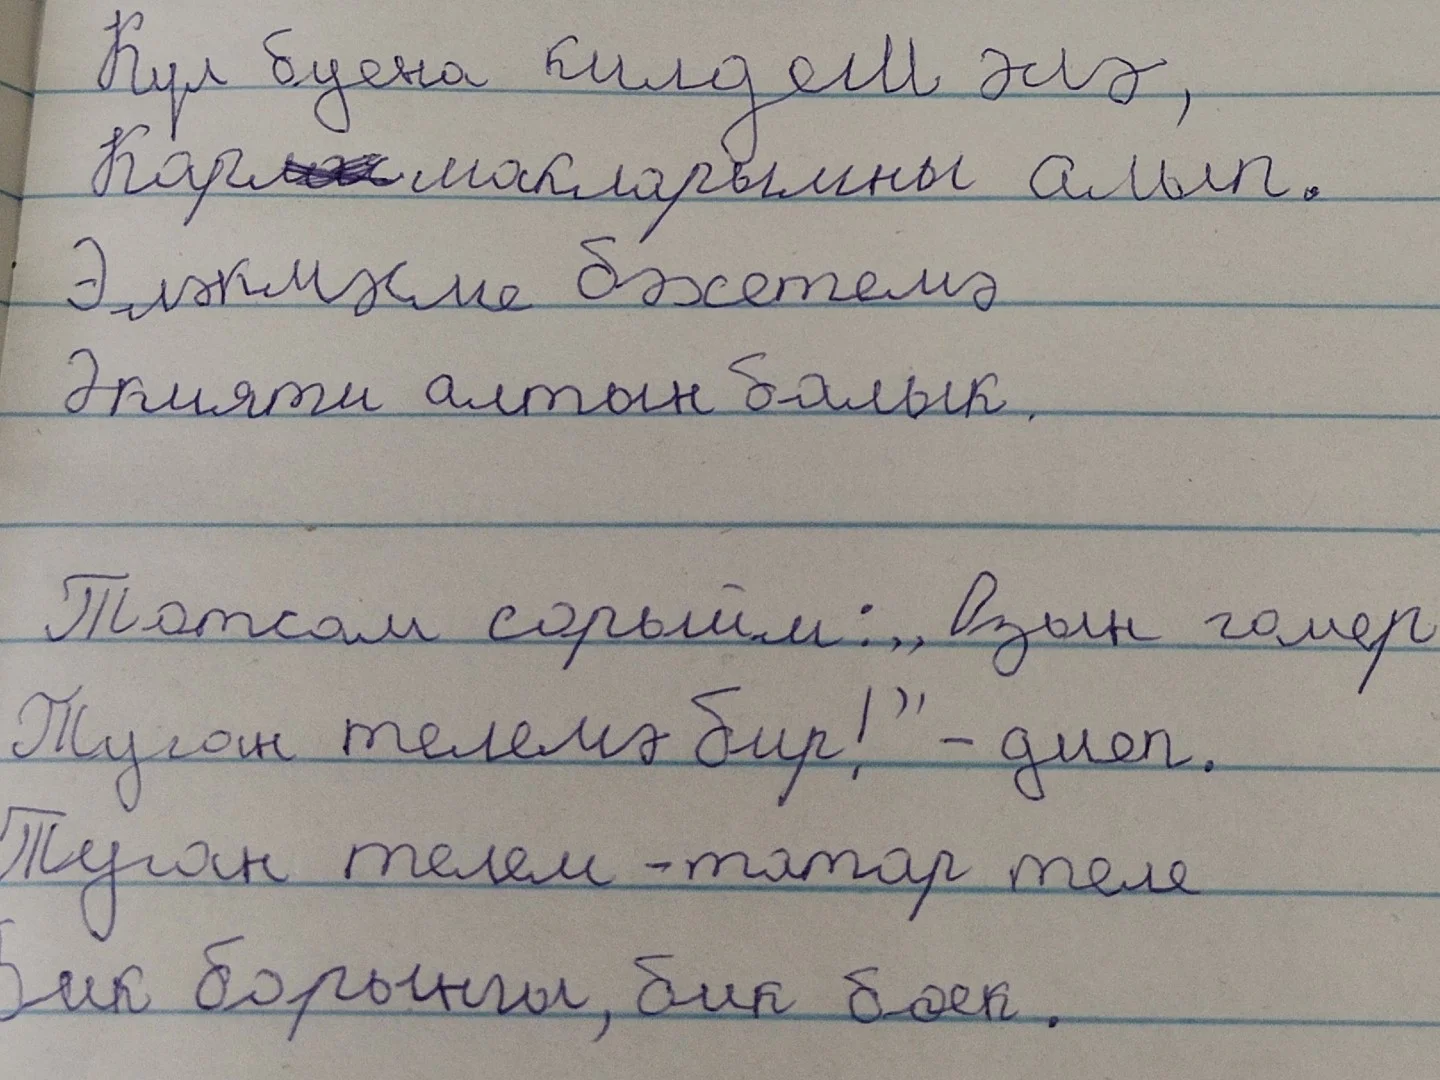 Күл буена килдем әлә,
Кармакларымны алып.
Эләкмәсме бәхетемә
Әкияти алтын балык.
Тотсам сорыйм: „Озын гомер
Туган телемә бир!" - диеп.
Туган телем - татар теле
Бик борынгы, бик бөек.